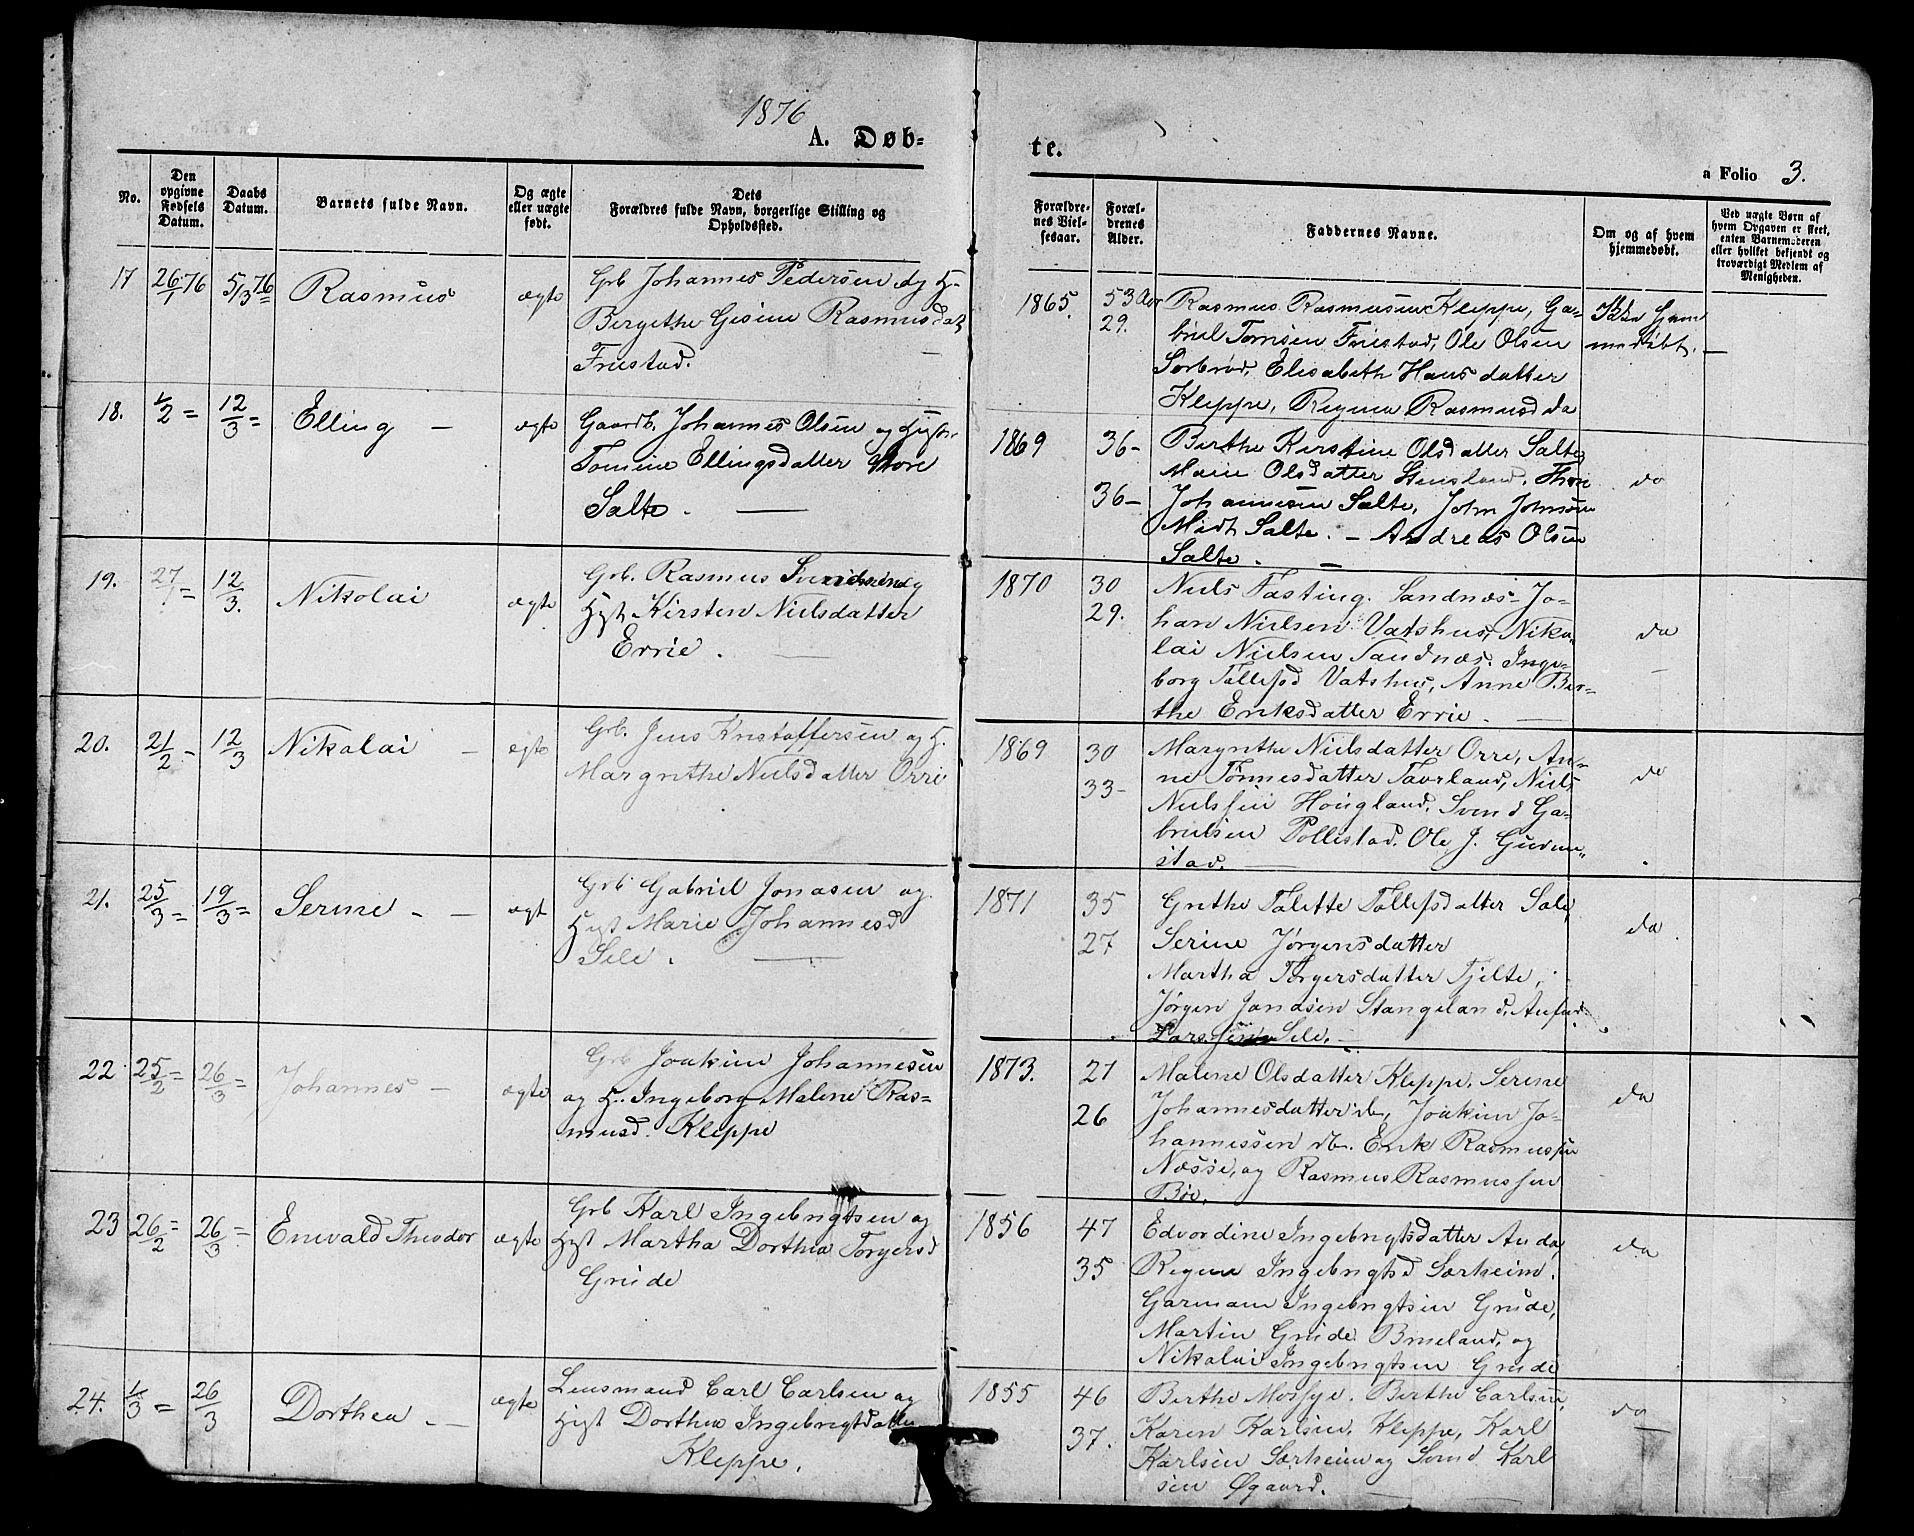 1876
A. Døb-
te.
a Folio 3.
No.
Den opgivne Fødsels Datum.
Daabs Datum.
Barnets fulde Navn.
Og ægte eller uægte født.
Dets Forældres fulde Navn, borgerlige Stilling og Opholdssted.
Forældrenes Vielsesaar.
Forældrenes Alder.
Faddernes Navne.
Om og af hvem hjemmedøbt.
Ved uægte Børn af hvem Opgaven er skeet, enten Barnemoderen eller hvilket bekjendt og troværdigt Medlem af Menigheden.
17 26/1 76 5/3 76 Rasmus ægte
Grb Johannes Pedersen og H.
Bergethe Gesine Rasmusdat
Friestad.
1865. 53 Aar
29.
Rasmus Rasmusen Kleppe, Ga-
briel Tornsen Friestad, Ole Olsen
Sørbrød, Elisabeth Hansdatter
Kleppe, Regina Rasmusd da
Ikke hjem
medøbt. —
18. 1/2 = 12/3 = Elling — ægte
Gaardb. Johannes Olsen og Hust
Tomine Ellingsdatter Store
Salte. —
1869 36-
36-
Birthe Kirstine Olsdatter Salte,
Marie Olsdatter Stensland, Thore
Johannesen Salte, John Johnsen
Midt Salte. - Andreas Olsen
Salte. —
do
19. 27/1 = 12/3. Nikolai ægte
Grb. Rasmus Svendsen og
Hust Kirsten Nielsdatter
Errie. —
1870 30
29.
Niels Fasting. Sandnæs- Jo-
han Nielsen Vatshus, Niko-
lai Nielsen Sandnæs. Inge-
borg Tollefsd Vatshus, Anne Bir-
the Eriksdatter Errie. —
da
20. 21/2 - 12/3 Nikolai — ægte
Grb. Jens Kristoffersen og H.
Margrethe Nielsdatter Orre
1869 30
33-
Margrethe Nielsdatter Orre, An-
ne Tønnesdatter Tavrland, Niels
Nielssen Hougland, Svend Ga-
brielsen Pollestad. Ole J. Gudme-
stad. —
do
21. 25/3 = 19/3 = Serine - — ægt
Grb Gabriel Jonasen og
Hust Marie Johannesd
Sele. —
1871 35
27
Grethe Talette Tollefsdatter Sele,
Serine Jørgensdatter
Martha Torgersdatter Tjelte,
Jørgen Jonasen Stangeland,
Larssen Sele. —
da.
22 25/2 = 26/3 = Johannes — ægte
Grb Joakim Johannesen
og H. Ingeborg Malene Ras-
musd. Kleppe
1873. 27
26
Malene Olsdatter Kleppe, Serine
Johannesdatter ib, Joakim Jo-
hannessen ib. Erik Rasmussen
Næsse, og Rasmus Rasmussen
Bøe.
da
23 26/2 = 26/3 = Enevald Theodor ægte
Grb Karl Ingebrigtsen og
Hust Martha Dorthea Torgersd
Grude
1856 47
35
Edvordine Ingebrigtsdatter Auda,
Regina Ingebrigtsd Sørheim.
Garmann Ingebrigtsen Grude,
Martin Grude Brueland, og
Nikolai Ingebrigtsen Grude
da
24. 1/3 = 26/3 Dorthea - — ægte
Lensmand Carl Carlsen og
Hust Dorthea Ingebrigtdatter
Kleppe.
1855 46
37.
Birthe Mossige. Birthe Carlsen,
Karen Karlsen, Kleppe, Karl
Karlsen Sørheim og Svend Karl
sen Øgaard. —
do